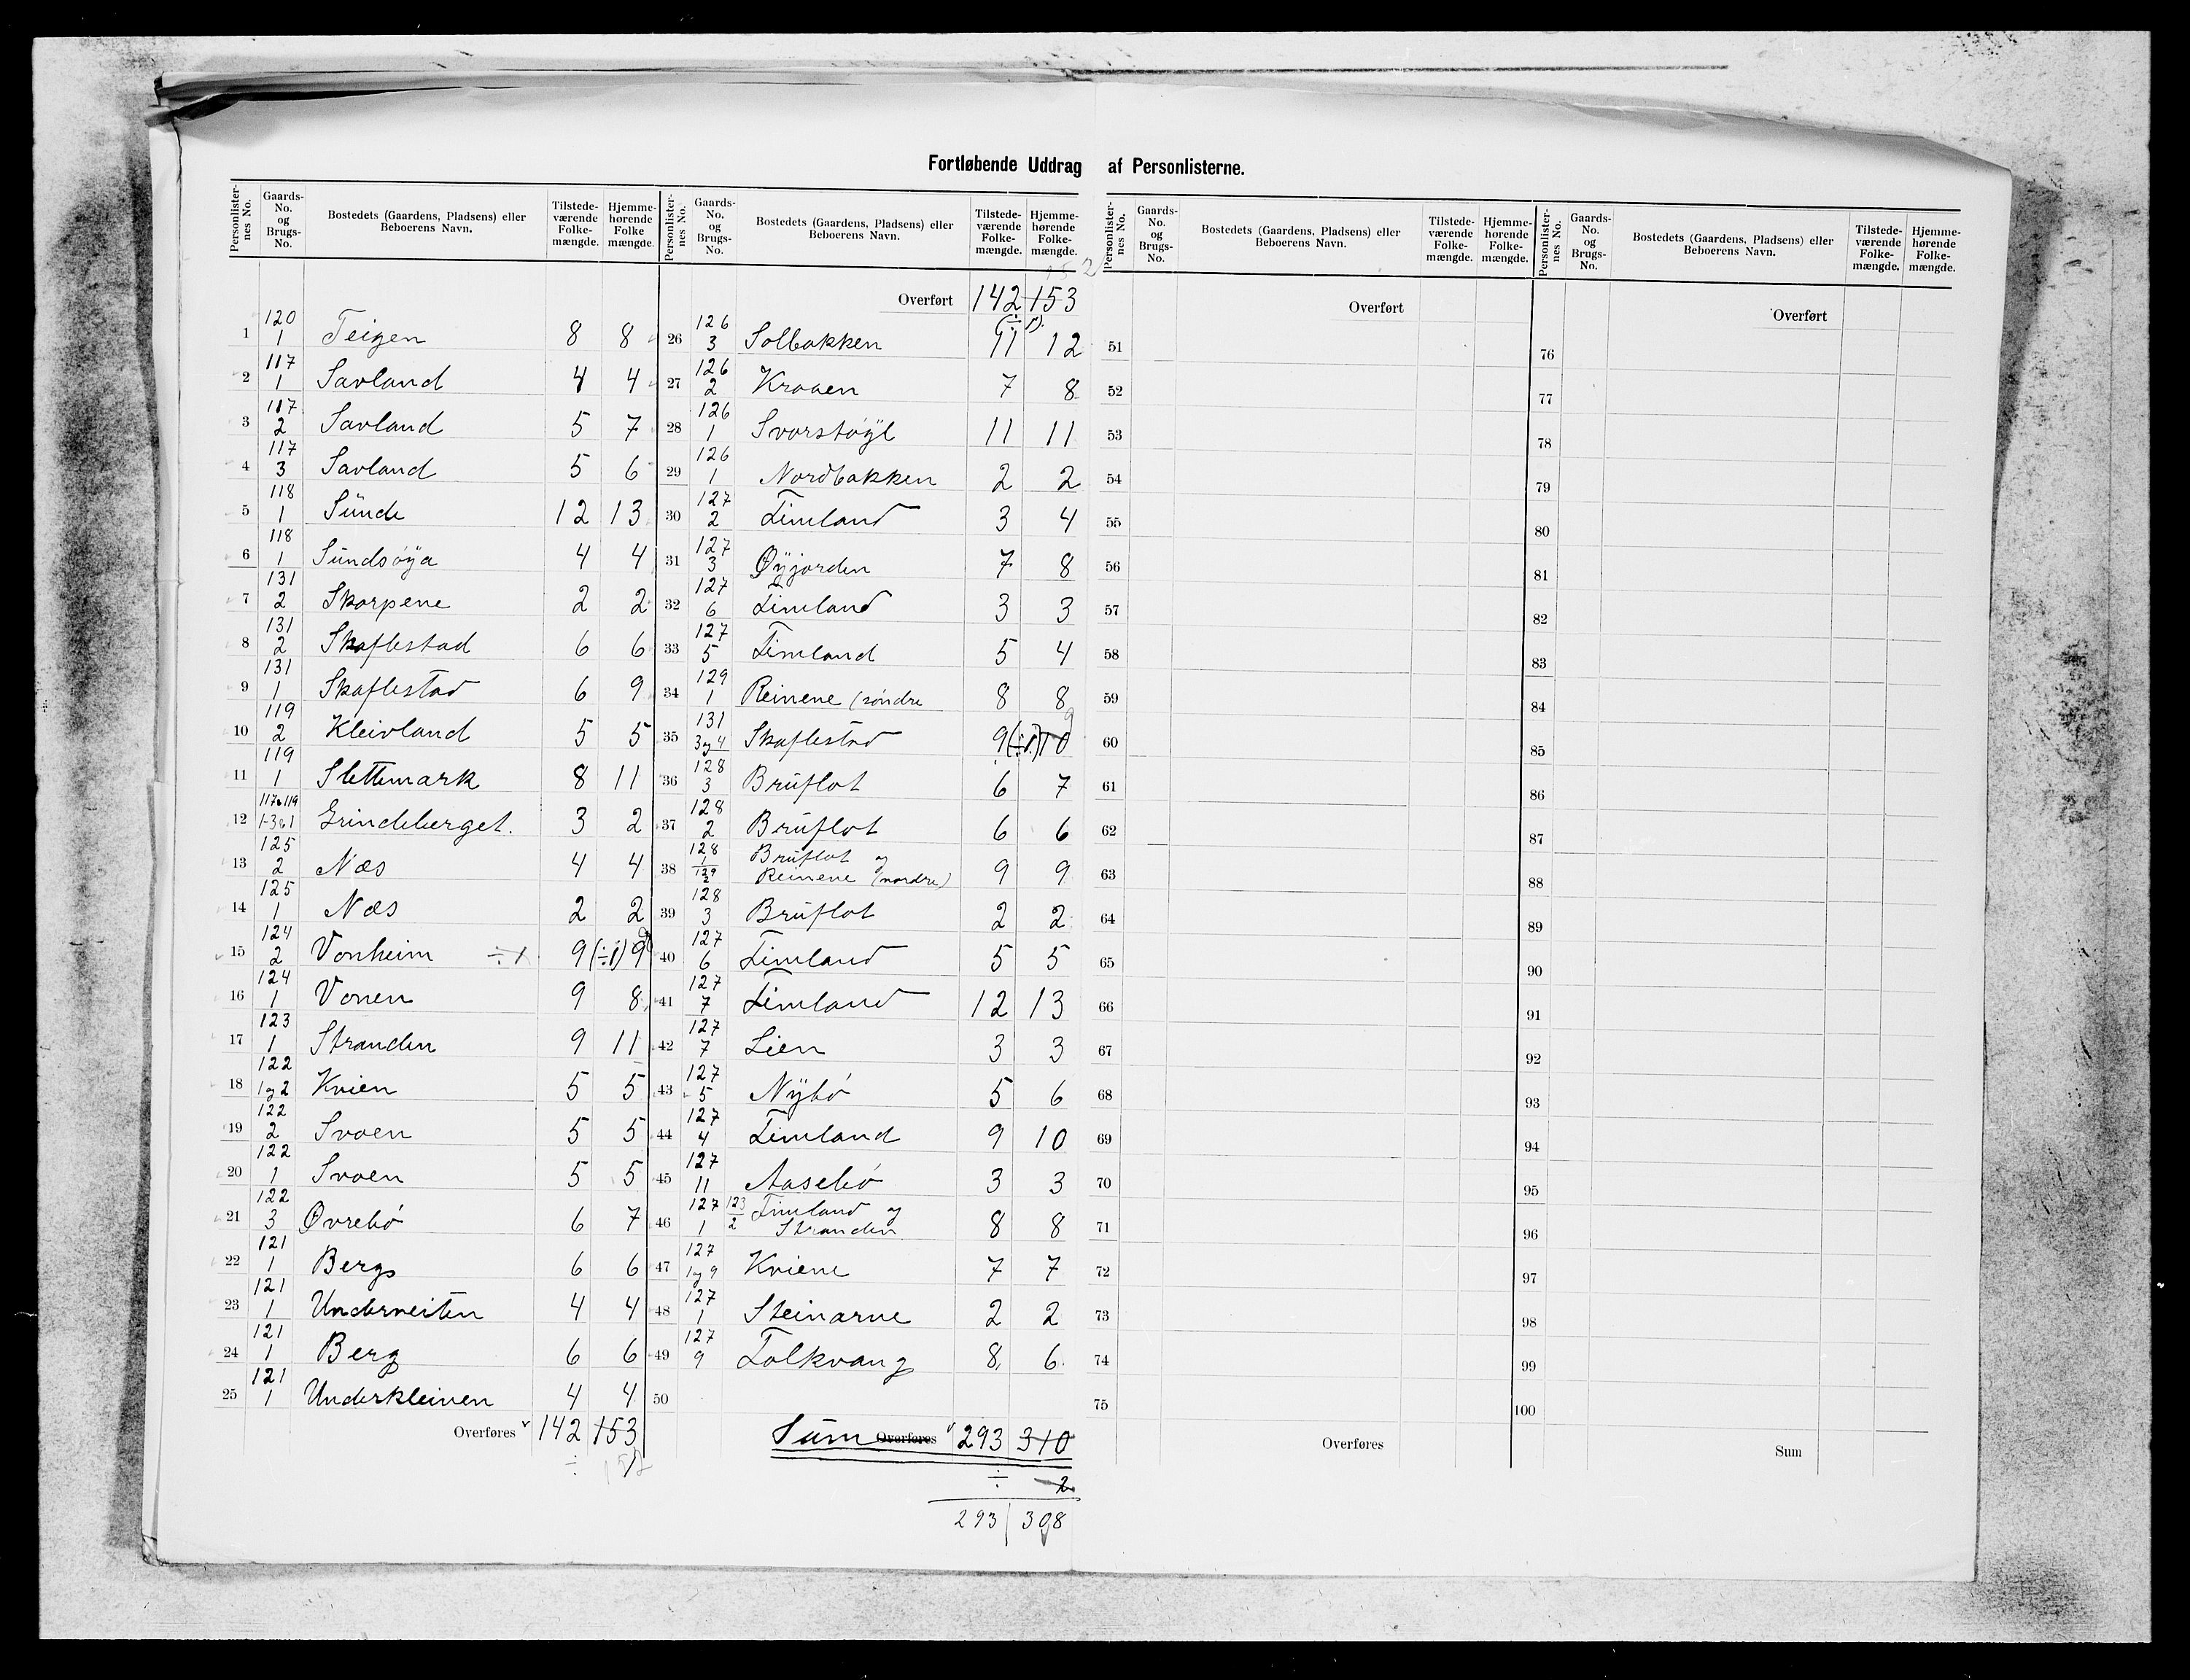 Fortløbende Uddrag af Personlisterne.
Personlister-nes No. | Gaards-No. og Brugs-No. | Bostedets (Gaardens, Pladsens) eller Beboerens Navn. | Tilstede-værende Folke-mængde. | Hjemme-hørende Folke mængde.
1 | 120 1 | Teigen | 8 | 8
2 | 117 1 | Savland | 4 | 4
3 | 117 2 | Savland | 5 | 7
4 | 117 3 | Savland | 5 | 6
5 | 118 1 | Sunde | 12 | 13
6 | 118 1 | Sundsøya | 4 | 4
7 | 131 2 | Skorpene | 2 | 2
8 | 131 2 | Skaflestad | 6 | 6
9 | 131 1 | Skaflestad | 6 | 9
10 | 119 2 | Kleivland | 5 | 5
11 | 119 1 | Slettemark | 8 | 11
12 | 117 & 119 1-3 & 1 | Grindeberget. | 3 | 2
13 | 125 2 | Næs | 4 | 4
14 | 125 1 | Næs | 2 | 2
15 | 124 2 | Vonheim ÷ 1 | 9 (÷1) | 9
16 | 124 1 | Vonen | 9 | 8
17 | 123 1 | Stranden | 9 | 11
18 | 122 1 og 2 | Kvien | 5 | 5
19 | 122 2 | Svoen | 5 | 5
20 | 122 1 | Svoen | 5 | 5
21 | 122 3 | Øvrebø | 6 | 7
22 | 121 1 | Berg | 6 | 6
23 | 121 1 | Underveiten | 4 | 4
24 | 121 1 | Berg | 6 | 6
25 | 121 1 | Underkleiven | 4 | 4
Overføres 142 153
÷ 1
Personlister-nes No. | Gaards-No. og Brugs-No. | Bostedets (Gaardens, Pladsens) eller Beboerens Navn. | Tilstede-værende Folke-mængde. | Hjemme-hørende Folke-mængde.
Overført 142 153
(÷ 1).
26 | 126 3 | Solbakken | 11 | 12
27 | 126 2 | Kraaen | 7 | 8
28 | 126 1 | Svorstøyl | 11 | 11
29 | 126 1 | Nordbakken | 2 | 2
30 | 127 2 | Timland | 3 | 4
31 | 127 3 | Øyjorden | 7 | 8
32 | 127 6 | Timland | 3 | 3
33 | 127 5 | Timland | 5 | 4
34 | 129 1 | Reinene (søndre | 8 | 8
35 | 131 3 og 4 | Skaflestad | 9 (÷1) | 10 9
36 | 128 3 | Bruflot | 6 | 7
37 | 128 2 | Bruflot | 6 | 6
38 | 128 1 129 2 | Bruflot og Reinene (nordre) | 9 | 9
39 | 128 3 | Bruflot | 2 | 2
40 | 127 6 | Timland | 5 | 5
41 | 127 7 | Timland | 12 | 13
42 | 127 7 | Lien | 3 | 3
43 | 127 5 | Nybø | 5 | 6
44 | 127 4 | Timland | 9 | 10
45 | 127 11 | Aasebø | 3 | 3
46 | 127 1 123 2 | Timland og Stranden | 8 | 8
47 | 127 1 og 9 | Kviene | 7 | 7
48 | 127 1 | Steinarne | 2 | 2
49 | 127 9 | Tolkvang | 8 | 6
50
Sum Overføres 293 310
÷ 2
293 308
Personlister-nes No. | Gaards-No. og Brugs-No. | Bostedets (Gaardens, Pladsens) eller Beboerens Navn. | Tilstede-værende Folke-mængde. | Hjemme-hørende Folke-mængde.
Overført
51
52
53
54
55
56
57
58
59
60
61
62
63
64
65
66
67
68
69
70
71
72
73
74
75
Overføres
Personlister-nes No. | Gaards-No. og Brugs-No. | Bostedets (Gaardens, Pladsens) eller Beboerens Navn. | Tilstede-værende Folke-mængde. | Hjemme-hørende Folke-mængde.
Overført
76
77
78
79
80
81
82
83
84
85
86
87
88
89
90
91
92
93
94
95
96
97
98
99
100
Sum